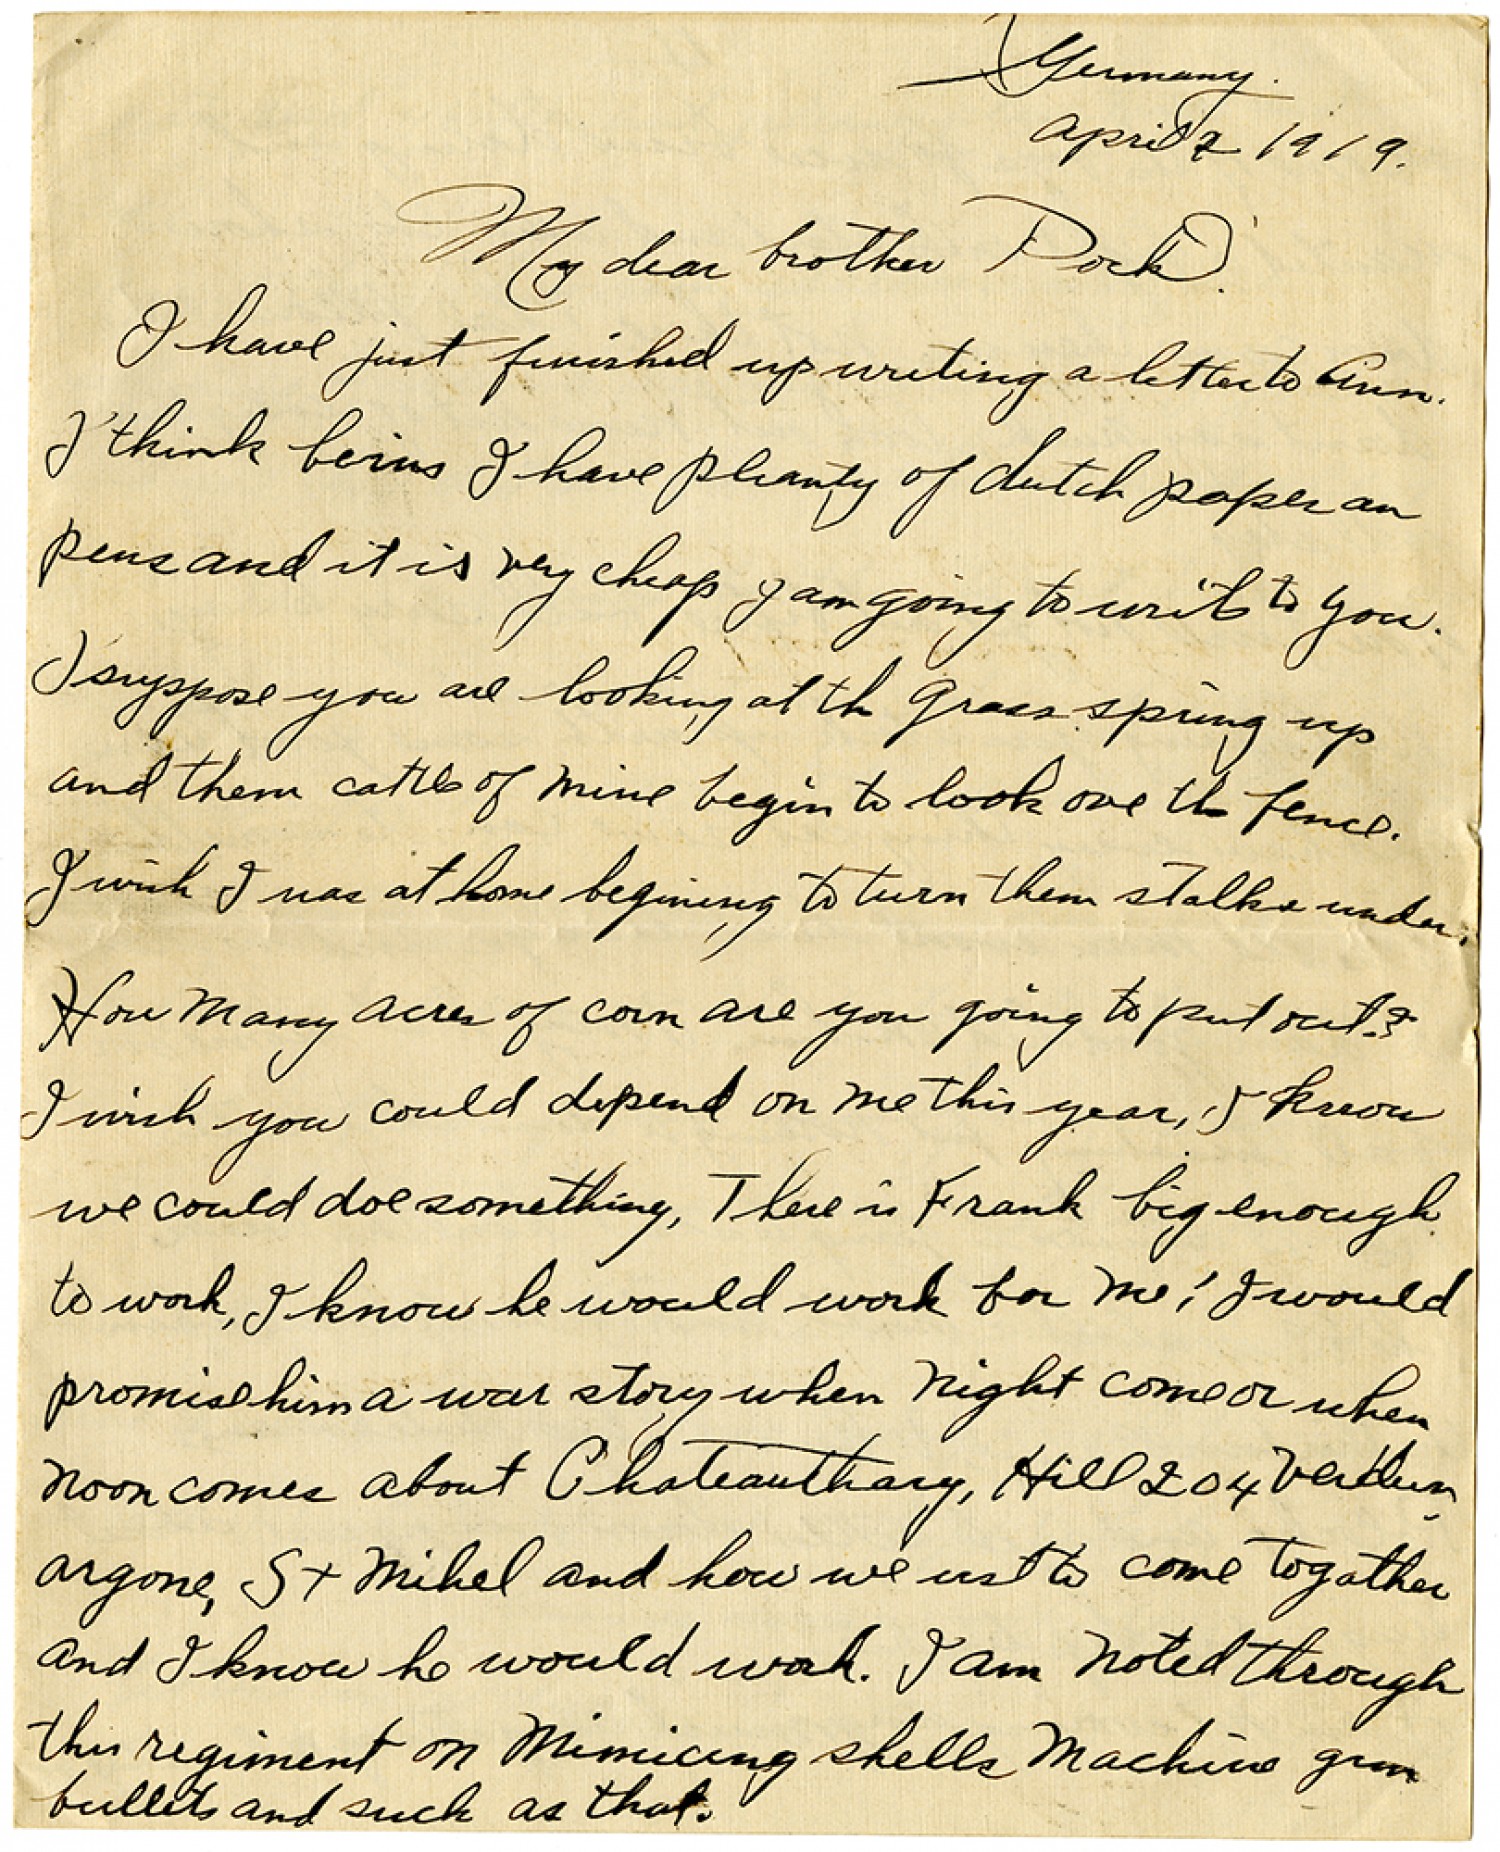 Germany.
April 2 1919.
My dear brother Pock.
I have just finished up writing a letter to Ann.
I think beins I have pleanty of dutch paper an
pens and it is very cheap I am going to write to you.
I suppose you are looking at th grass spring up
and them cattle of mine begin to look ove th fence.
I wish I was at home begining to turn them stalks under.
How many acres of corn are you going to put out?
I wish you could depend on me this year, I know
we could doe something, There is Frank big enough
to work, I know he would work for me! I would
promise him a war story when night come or when
noon comes about Chateauthary, Hill 204 Verdun,
argone, St Mihel and how we ust to come togather
and I know he would work. I am noted through
this regiment on mimicing shells machine gun
bullets and such as that.